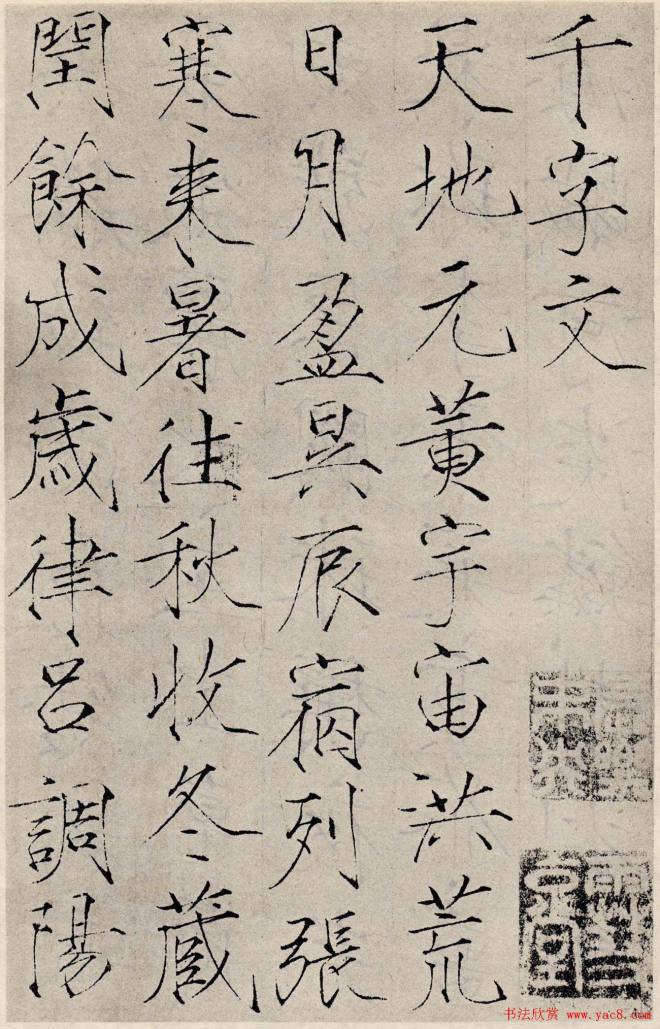 千字文
天地元黄宇宙洪荒
日月盈昃辰宿列張
寒来暑往秋收冬蔵
閏餘成歲律吕調陽
书法欣赏 www.yac8.com